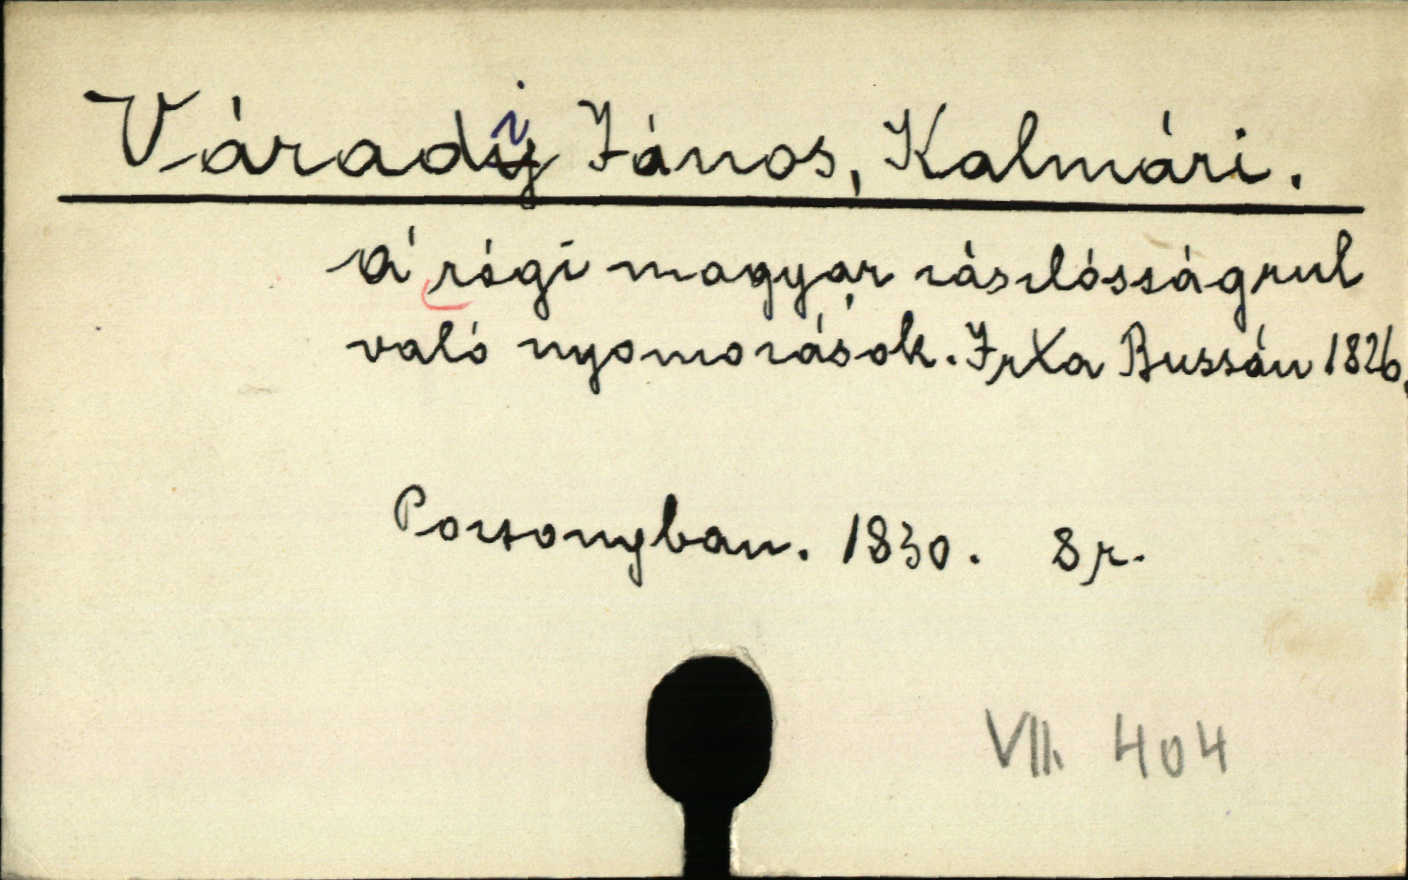 Váradi János, Kalmári.
A' régi magyar zászlósságrul
való nyomozások. Irta Bussán 1826.
Pozsonyban. 1830. 8 r.
VII. 404